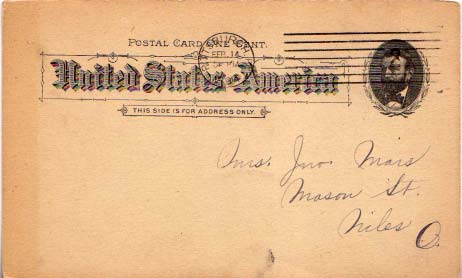 POSTAL CARD ONE CENT.
PITTSBURGH
FEB 14
United States of America
THIS SIDE IS FOR ADDRESS ONLY.
Mrs. Jno. Mars
Mason St.
Niles O.